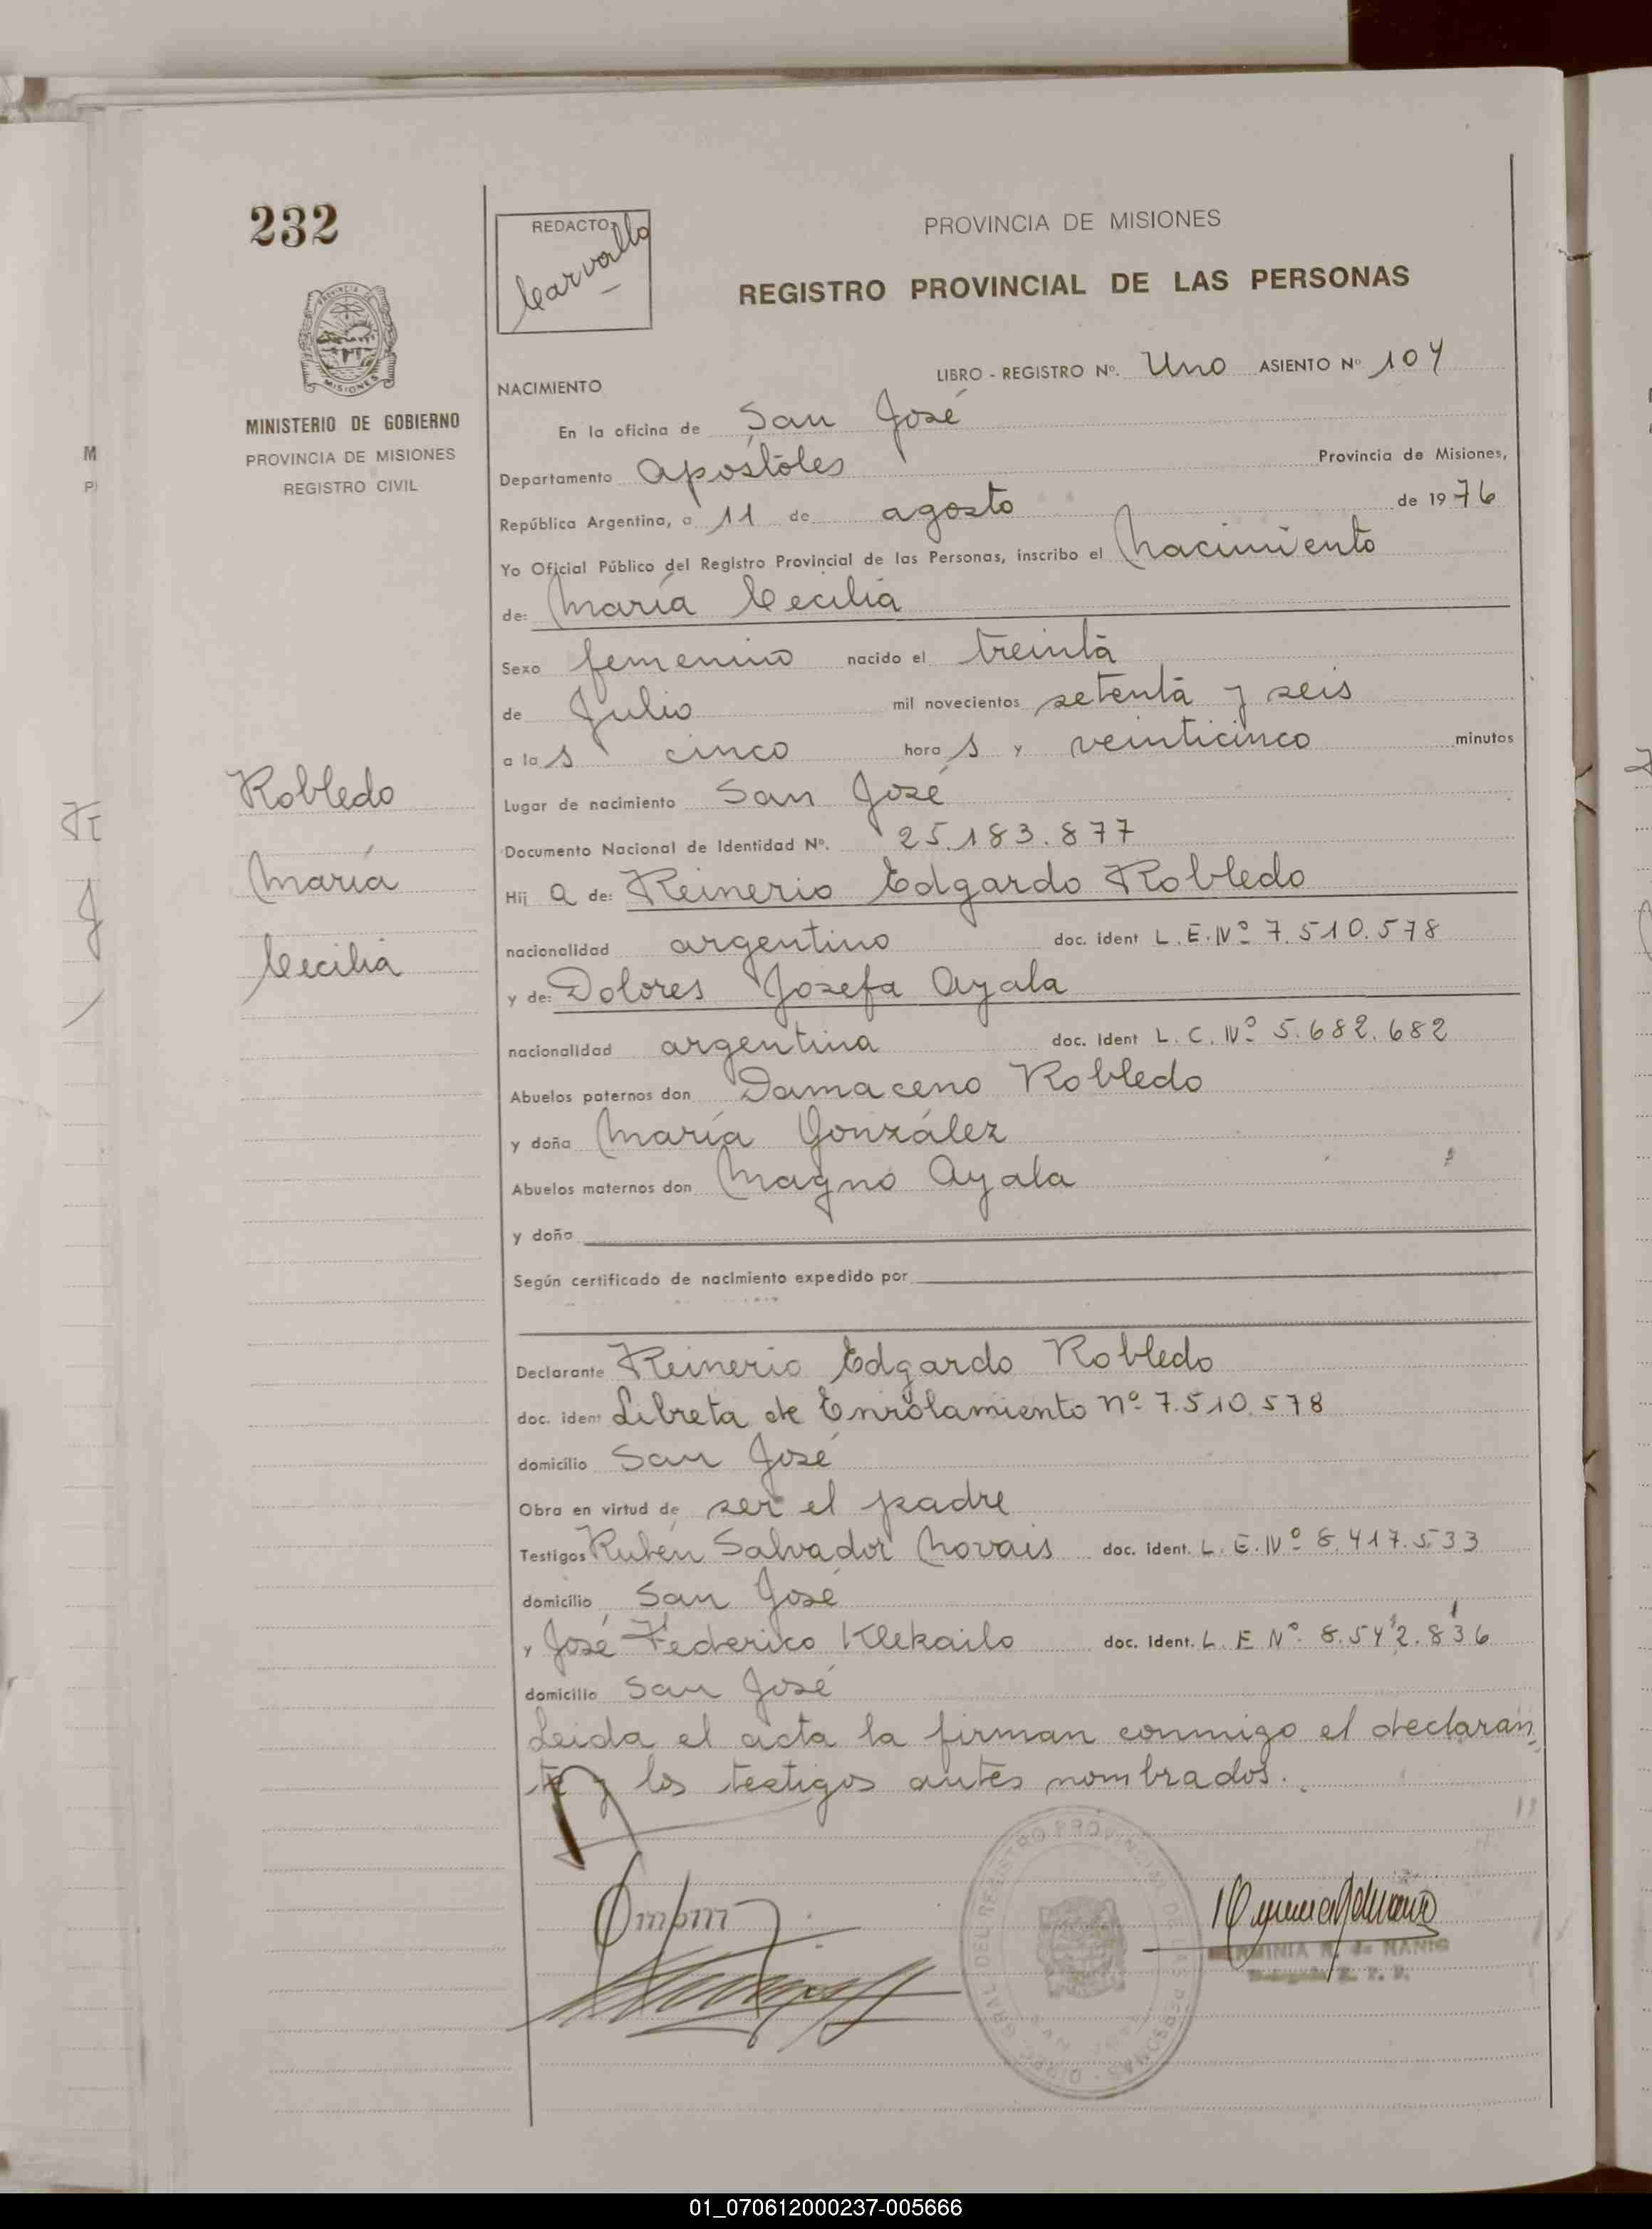 232
REDACTO:
Carvallo
PROVINCIA DE MISIONES
REGISTRO PROVINCIAL DE LAS PERSONAS
MISIONES
MINISTERIO DE GOBIERNO
PROVINCIA DE MISIONES
REGISTRO CIVIL
LIBRO - REGISTRO Nº. Uno ASIENTO Nº 104
NACIMIENTO
En la oficina de San José
Departamento Apóstoles Provincia de Misiones,
República Argentina, a 11 de agosto de 1976
Yo Oficial Público del Registro Provincial de las Personas, inscribo el Nacimiento
de: María Cecilia
Sexo femenino nacido el treinta
de Julio mil novecientos setenta y seis
a las cinco horas y veinticinco minutos
Lugar de nacimiento San José
Documento Nacional de Identidad Nº. 25.183.877
Hija de: Reinerio Edgardo Robledo
nacionalidad argentino doc. ident L.E.Nº 7.510.578
y de: Dolores Josefa Ayala
nacionalidad argentina doc. ident L.C.Nº 5.682.682
Abuelos paternos don Damaceno Robledo
y doña María González
Abuelos maternos don Magno Ayala
y doña
Según certificado de nacimiento expedido por
Robledo
María
Cecilia
Declarante Reinerio Edgardo Robledo
doc. ident Libreta de Enrolamiento nº 7.510.578
domicilio San José
Obra en virtud de ser el padre
Testigos Rubén Salvador Novais doc. ident. L.E.Nº 8.417.533
domicilio San José
y José Federico Klekailo doc. ident. L.E Nº 8.542.836
domicilio San José
Leida el acta la firman conmigo el declaran
te y los testigos antes nombrados.
DEL REGISTRO PROVINCIAL DE LAS PERSONAS
HERMINIA R. de NANIG
01_070612000237-005666